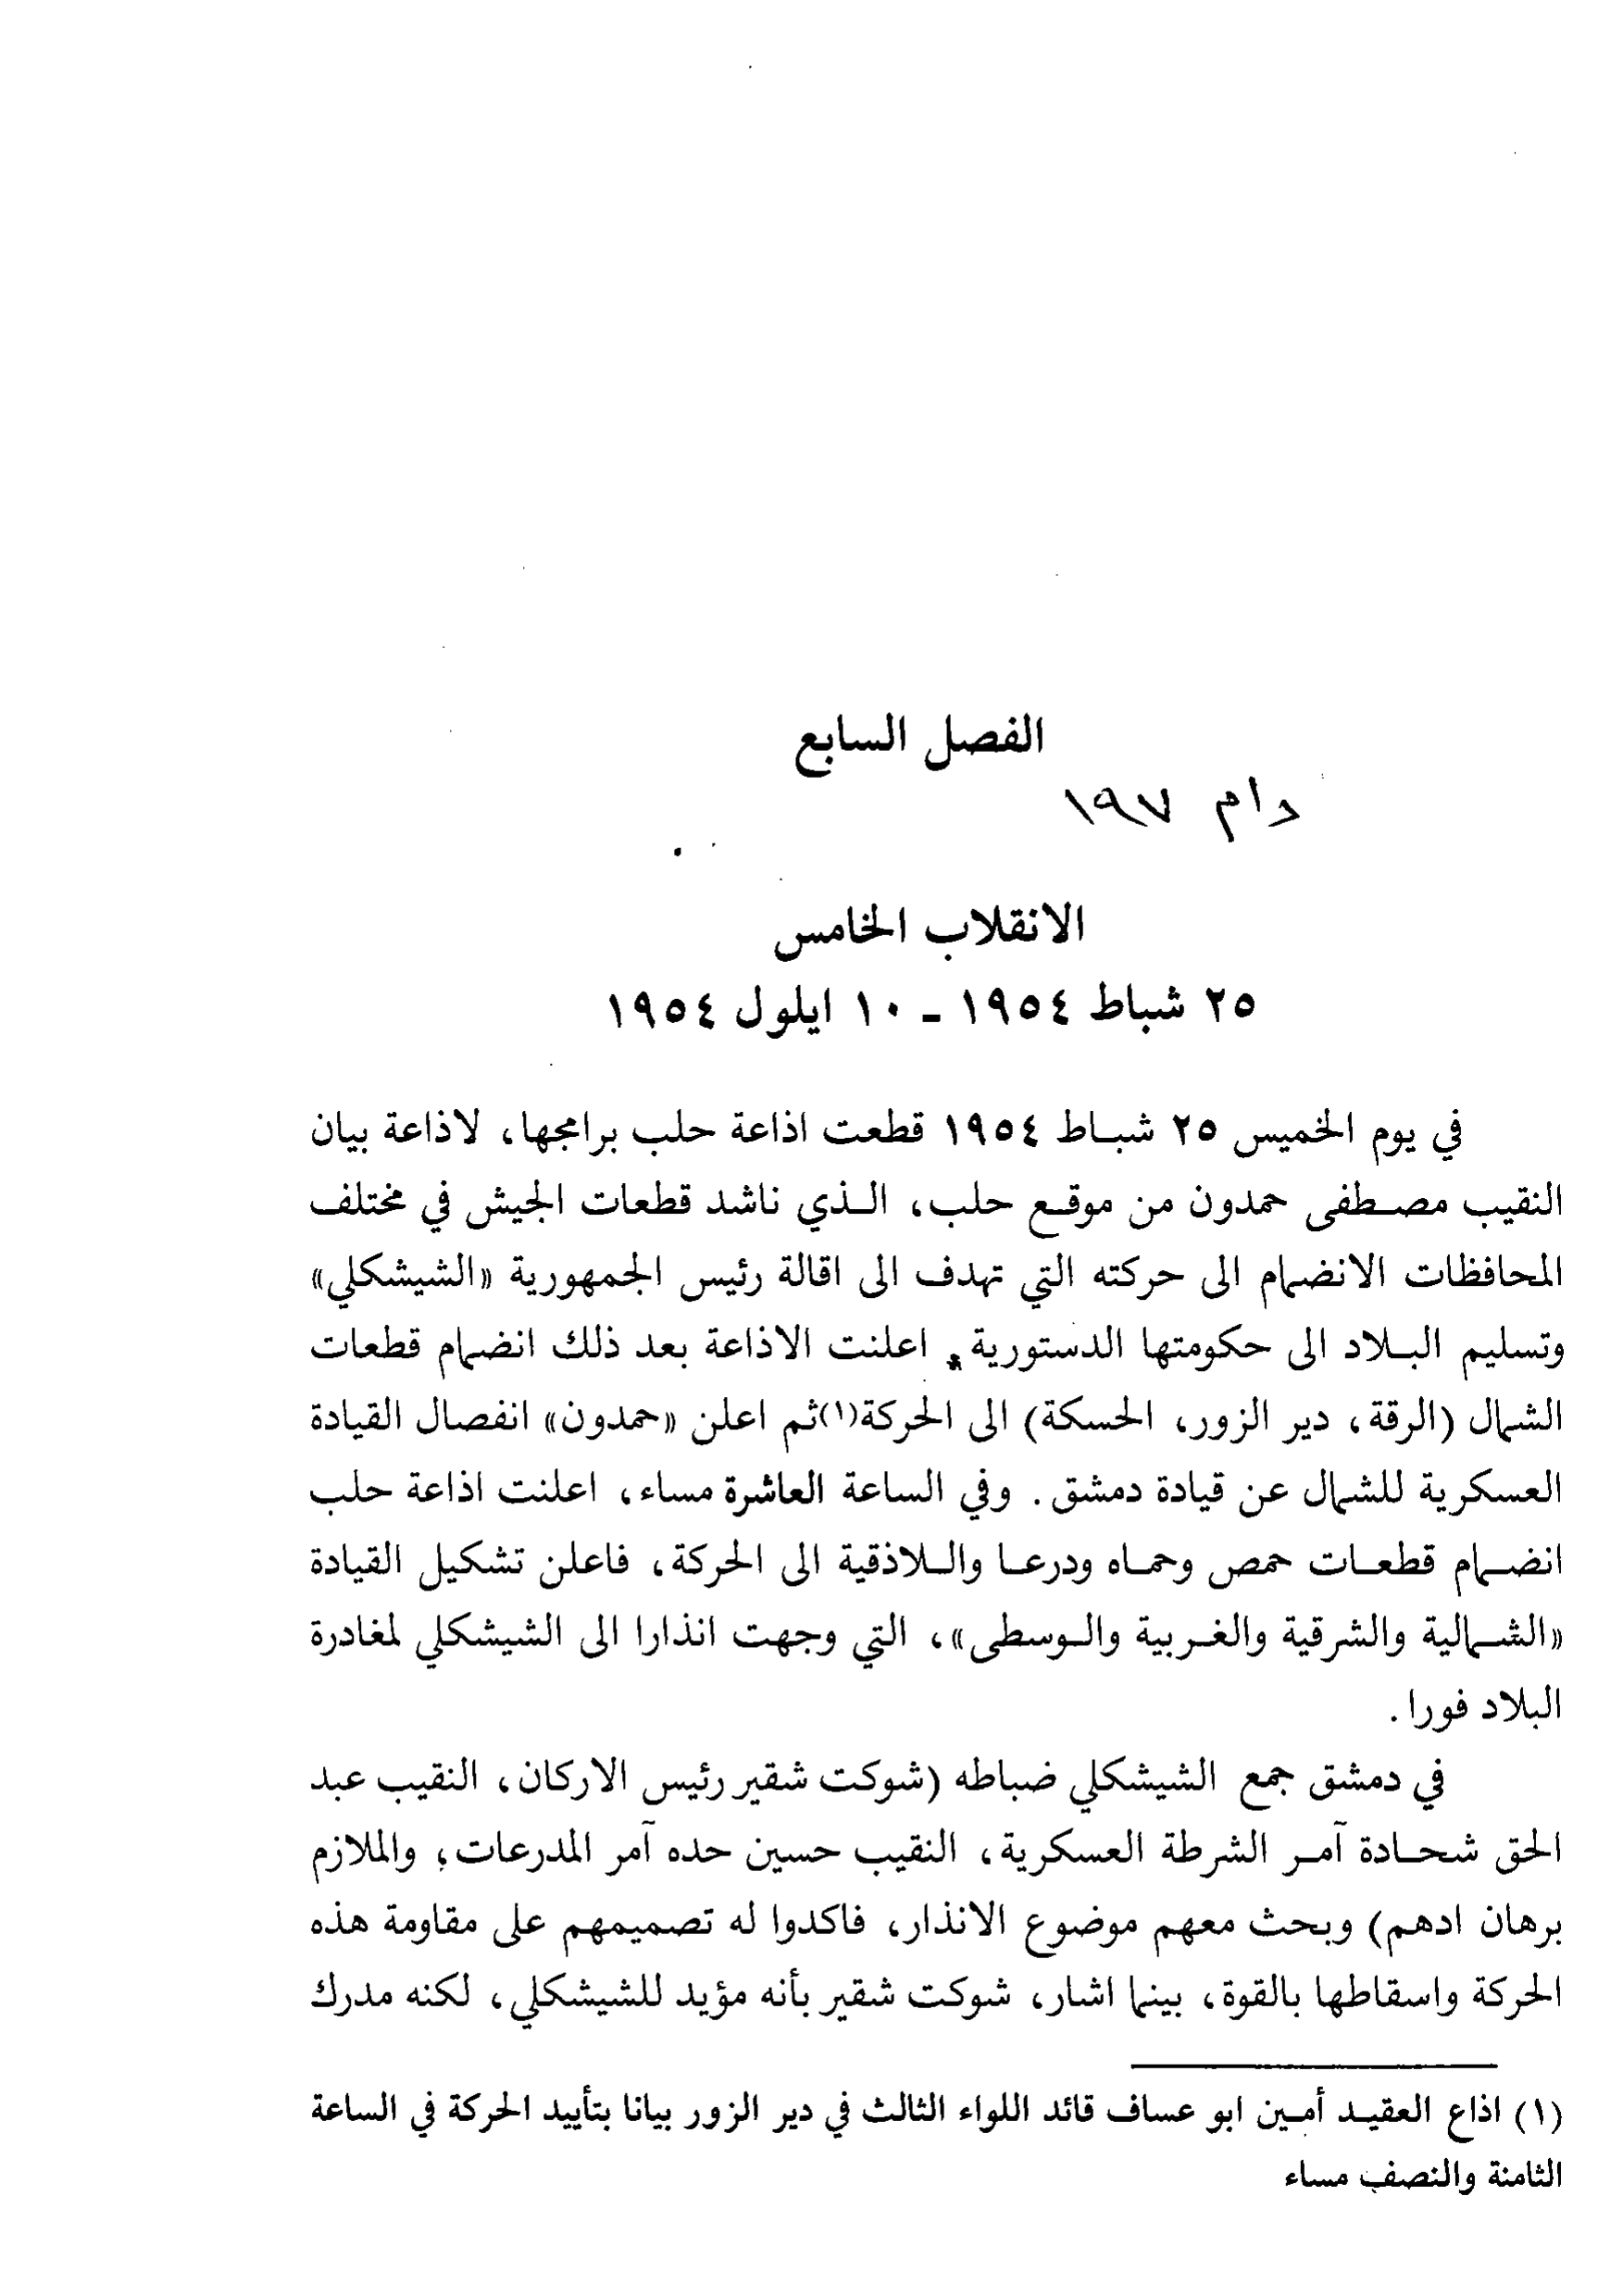 الفصل السابع
دام ١٩٧
الانقلاب الخامس
٢٥ شباط ١٩٥٤ - ١٠ ايلول ١٩٥٤
في يوم الخميس ٢٥ شباط ١٩٥٤ قطعت اذاعة حلب برامجها، لاذاعة بيان
النقيب مصطفى حمدون من موقع حلب، الذي ناشد قطعات الجيش في مختلف
المحافظات الانضمام الى حركته التي تهدف الى اقالة رئيس الجمهورية «الشيشكلي»
وتسليم البلاد الى حكومتها الدستورية، اعلنت الاذاعة بعد ذلك انضمام قطعات
الشمال (الرقة، دير الزور، الحسكة) الى الحركة(١) ثم اعلن «حمدون» انفصال القيادة
العسكرية للشمال عن قيادة دمشق. وفي الساعة العاشرة مساء، اعلنت اذاعة حلب
انضمام قطعات حمص وحماه ودرعا واللاذقية الى الحركة، فاعلن تشكيل القيادة
«الشمالية والشرقية والغربية والوسطى»، التي وجهت انذارا الى الشيشكلي لمغادرة
البلاد فورا.
في دمشق جمع الشيشكلي ضباطه (شوكت شقير رئيس الاركان، النقيب عبد
الحق شحادة آمر الشرطة العسكرية، النقيب حسين حده آمر المدرعات؛ والملازم
برهان ادهم) وبحث معهم موضوع الانذار، فاكدوا له تصميمهم على مقاومة هذه
الحركة واسقاطها بالقوة، بينما اشار، شوكت شقير بأنه مؤيد للشيشكلي، لكنه مدرك
(١) اذاع العقيد أمين ابو عساف قائد اللواء الثالث في دير الزور بيانا بتأييد الحركة في الساعة
الثامنة والنصف مساء